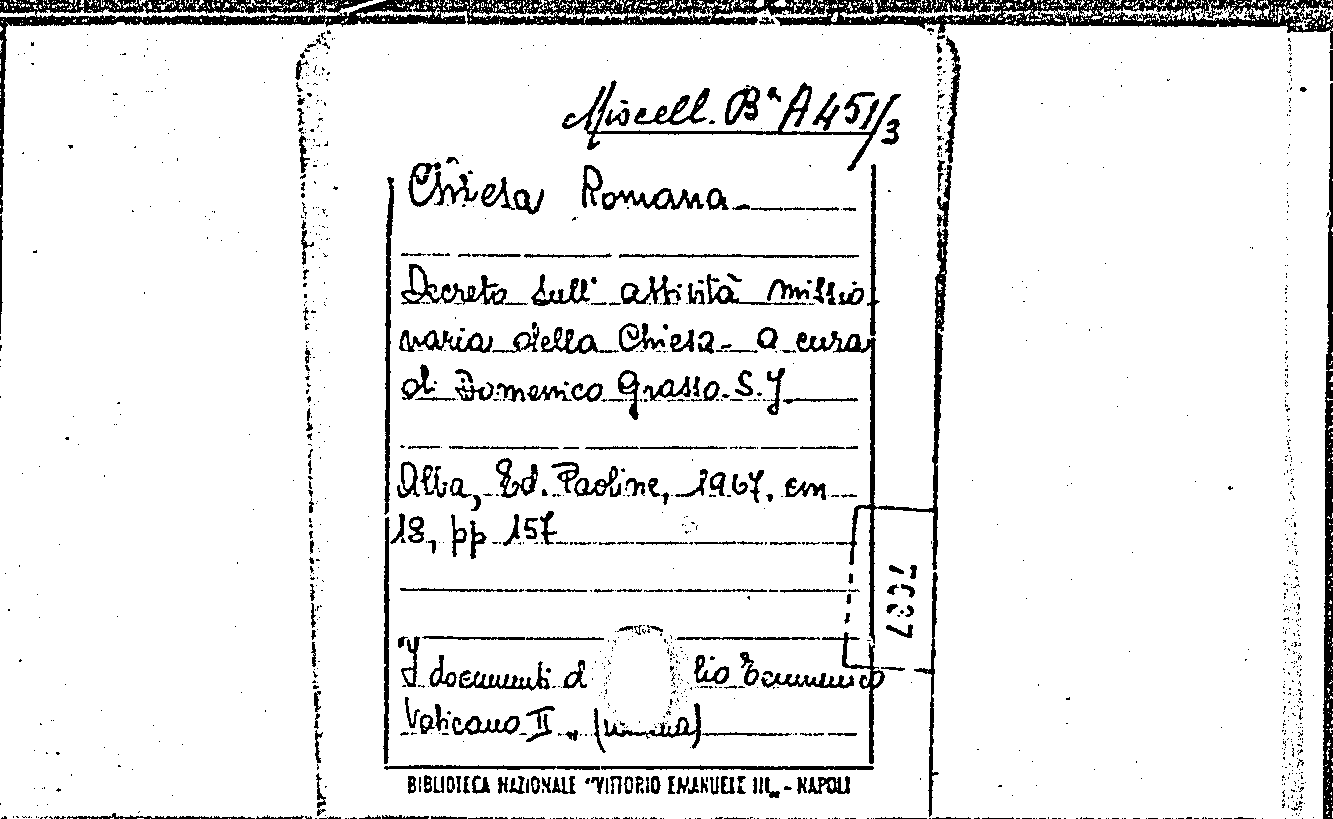 Miscell. Bª A 451/3
Chiesa Romana
Decreto sull' attività missio
naria della Chiesa - A cura
di Domenico Grasso. S.J.
Alba, Ed. Paoline, 1967, cm
18, pp 157
"I documenti d lio Ecumenico
Vaticano II „
BIBLIOTECA NAZIONALE "VITTORIO EMANUELE III„ - NAPOLI